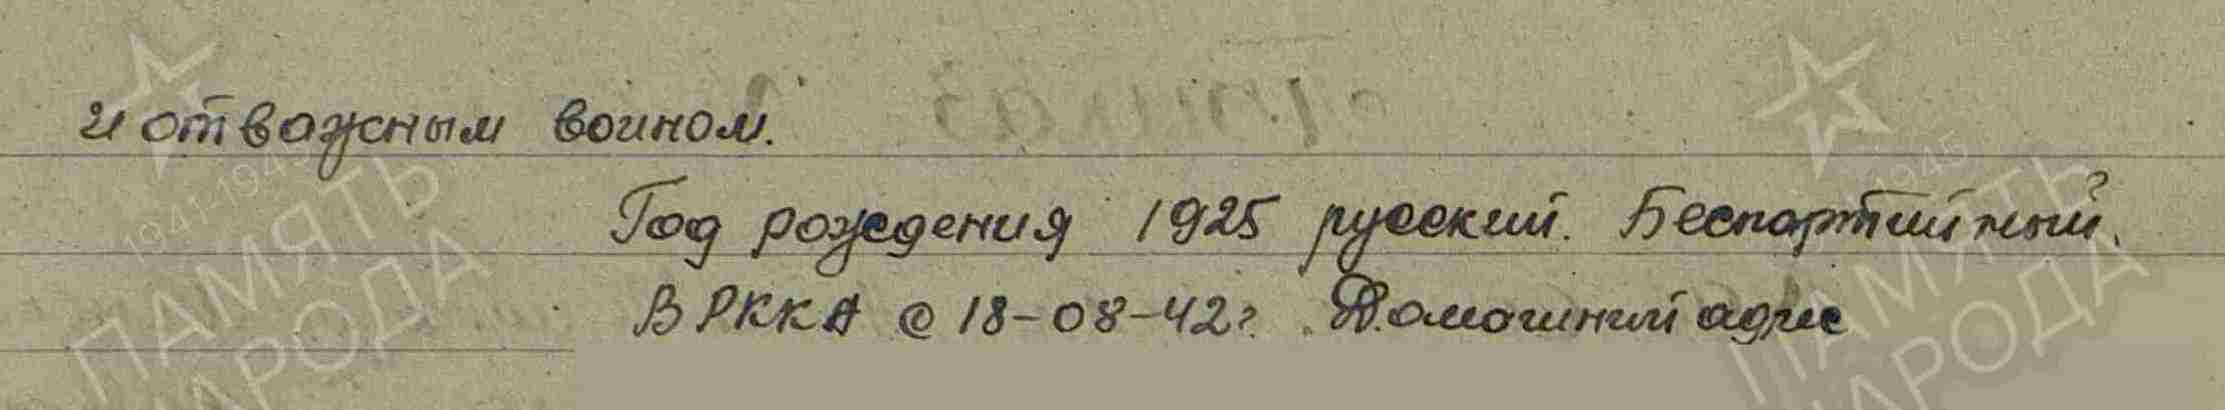 и отважным воином.
Год рождения 1925 русский. Беспартийный.
В РККА с 18-08-42г. Домашний адрес
1941-1945
ПАМЯТЬ
НАРОДА
1945
ПАМЯТЬ
НАРОДА